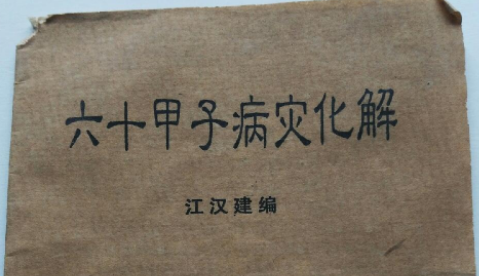 六十甲子病灾化解
江汉建编